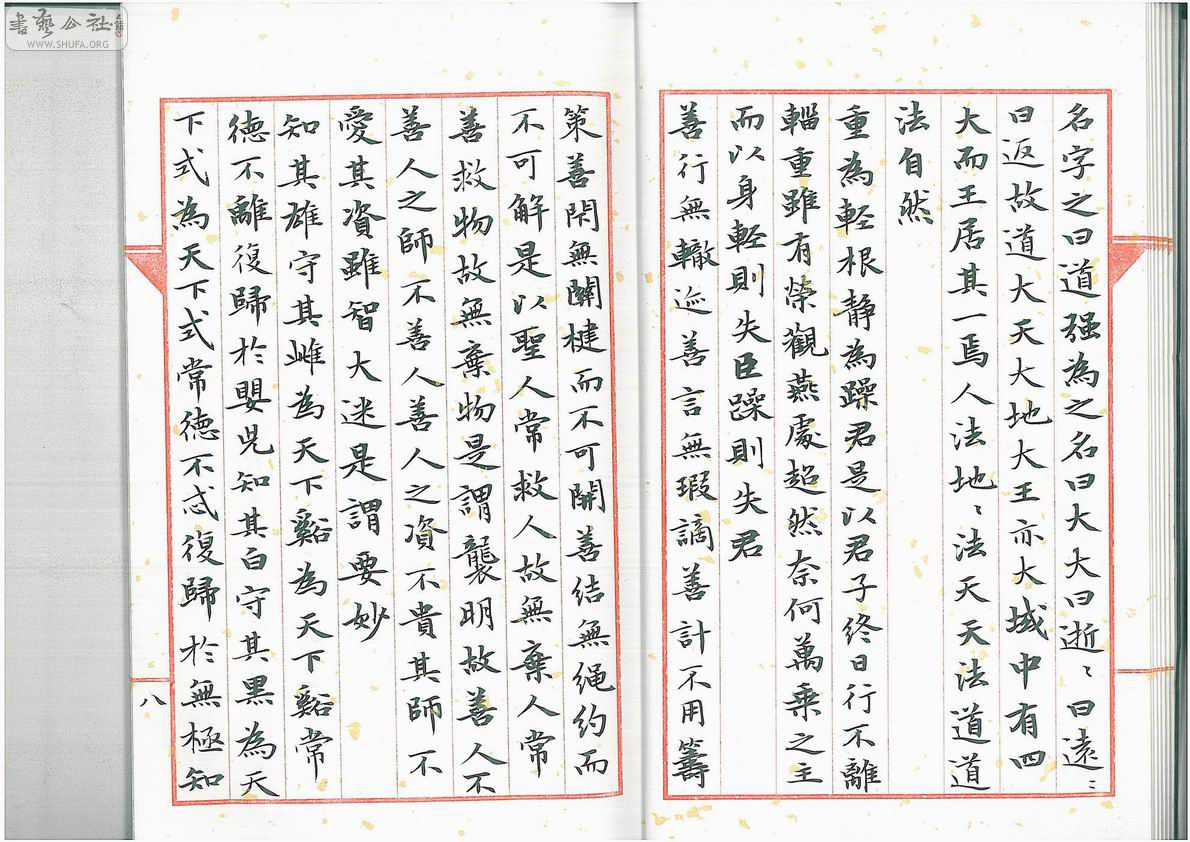 書藝公社
WWW.SHUFA.ORG
名字之曰道强為之名曰大大曰逝〻曰遠〻
曰返故道大天大地大王亦大域中有四
大而王居其一焉人法地〻法天天法道道
法自然
重為輕根靜為躁君是以君子終日行不離
輜重雖有榮觀燕處超然奈何萬乗之主
而以身輕則失臣躁則失君
善行無轍迹善言無瑕謫善計不用籌
策善閇無關楗而不可開善结無繩约而
不可解是以聖人常救人故無棄人常
善救物故無棄物是謂襲明故善人不
善人之師不善人善人之資不貴其師不
愛其資雖智大迷是謂要妙
知其雄守其雌為天下谿為天下谿常
德不離復歸於嬰児知其白守其黑為天
下式為天下式常德不忒復歸於無極知
八